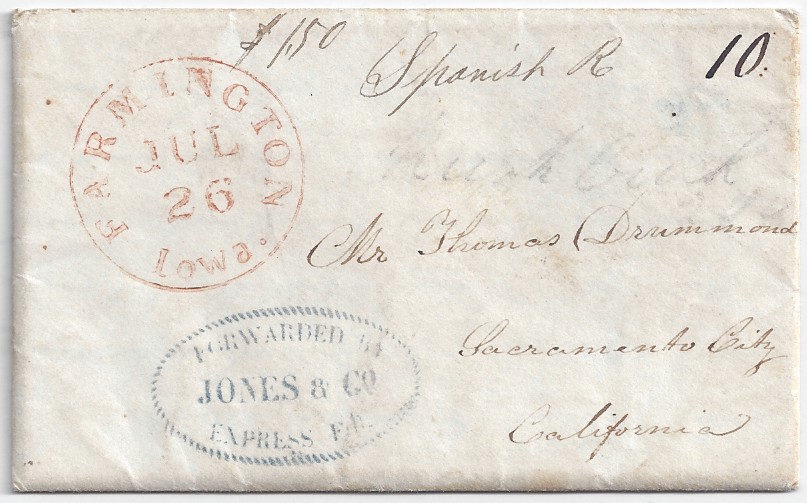 $ 1.50
Spanish R
10
FARMINGTON
JUL
26
Iowa.
Mr Thomas Drummond
Sacramento City
California
FORWARDED BY
JONES & CO
EXPRESS